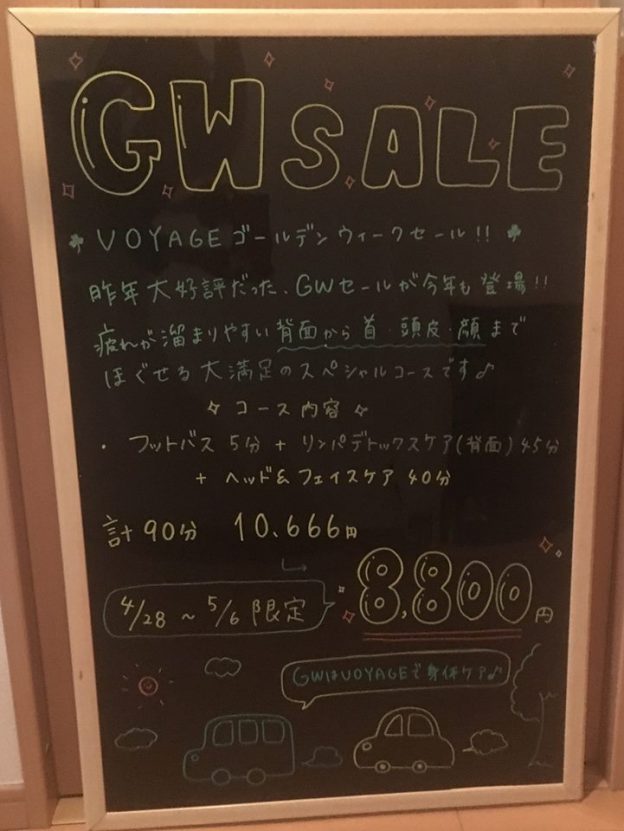 GW SALE
VOYAGE ゴールデンウィークセール!!
昨年大好評だった、GWセールが今年も登場!!
疲れが溜まりやすい背面から首・頭皮・顔まで
ほぐせる大満足のスペシャルコースです♪
コース内容
・フットバス 5分 + リンパデトックスケア(背面) 45分
+ ヘッド&フェイスケア 40分
計90分 10.666円
4/28 ~ 5/6 限定
8,800円
GWはVOYAGEで身体ケア♪